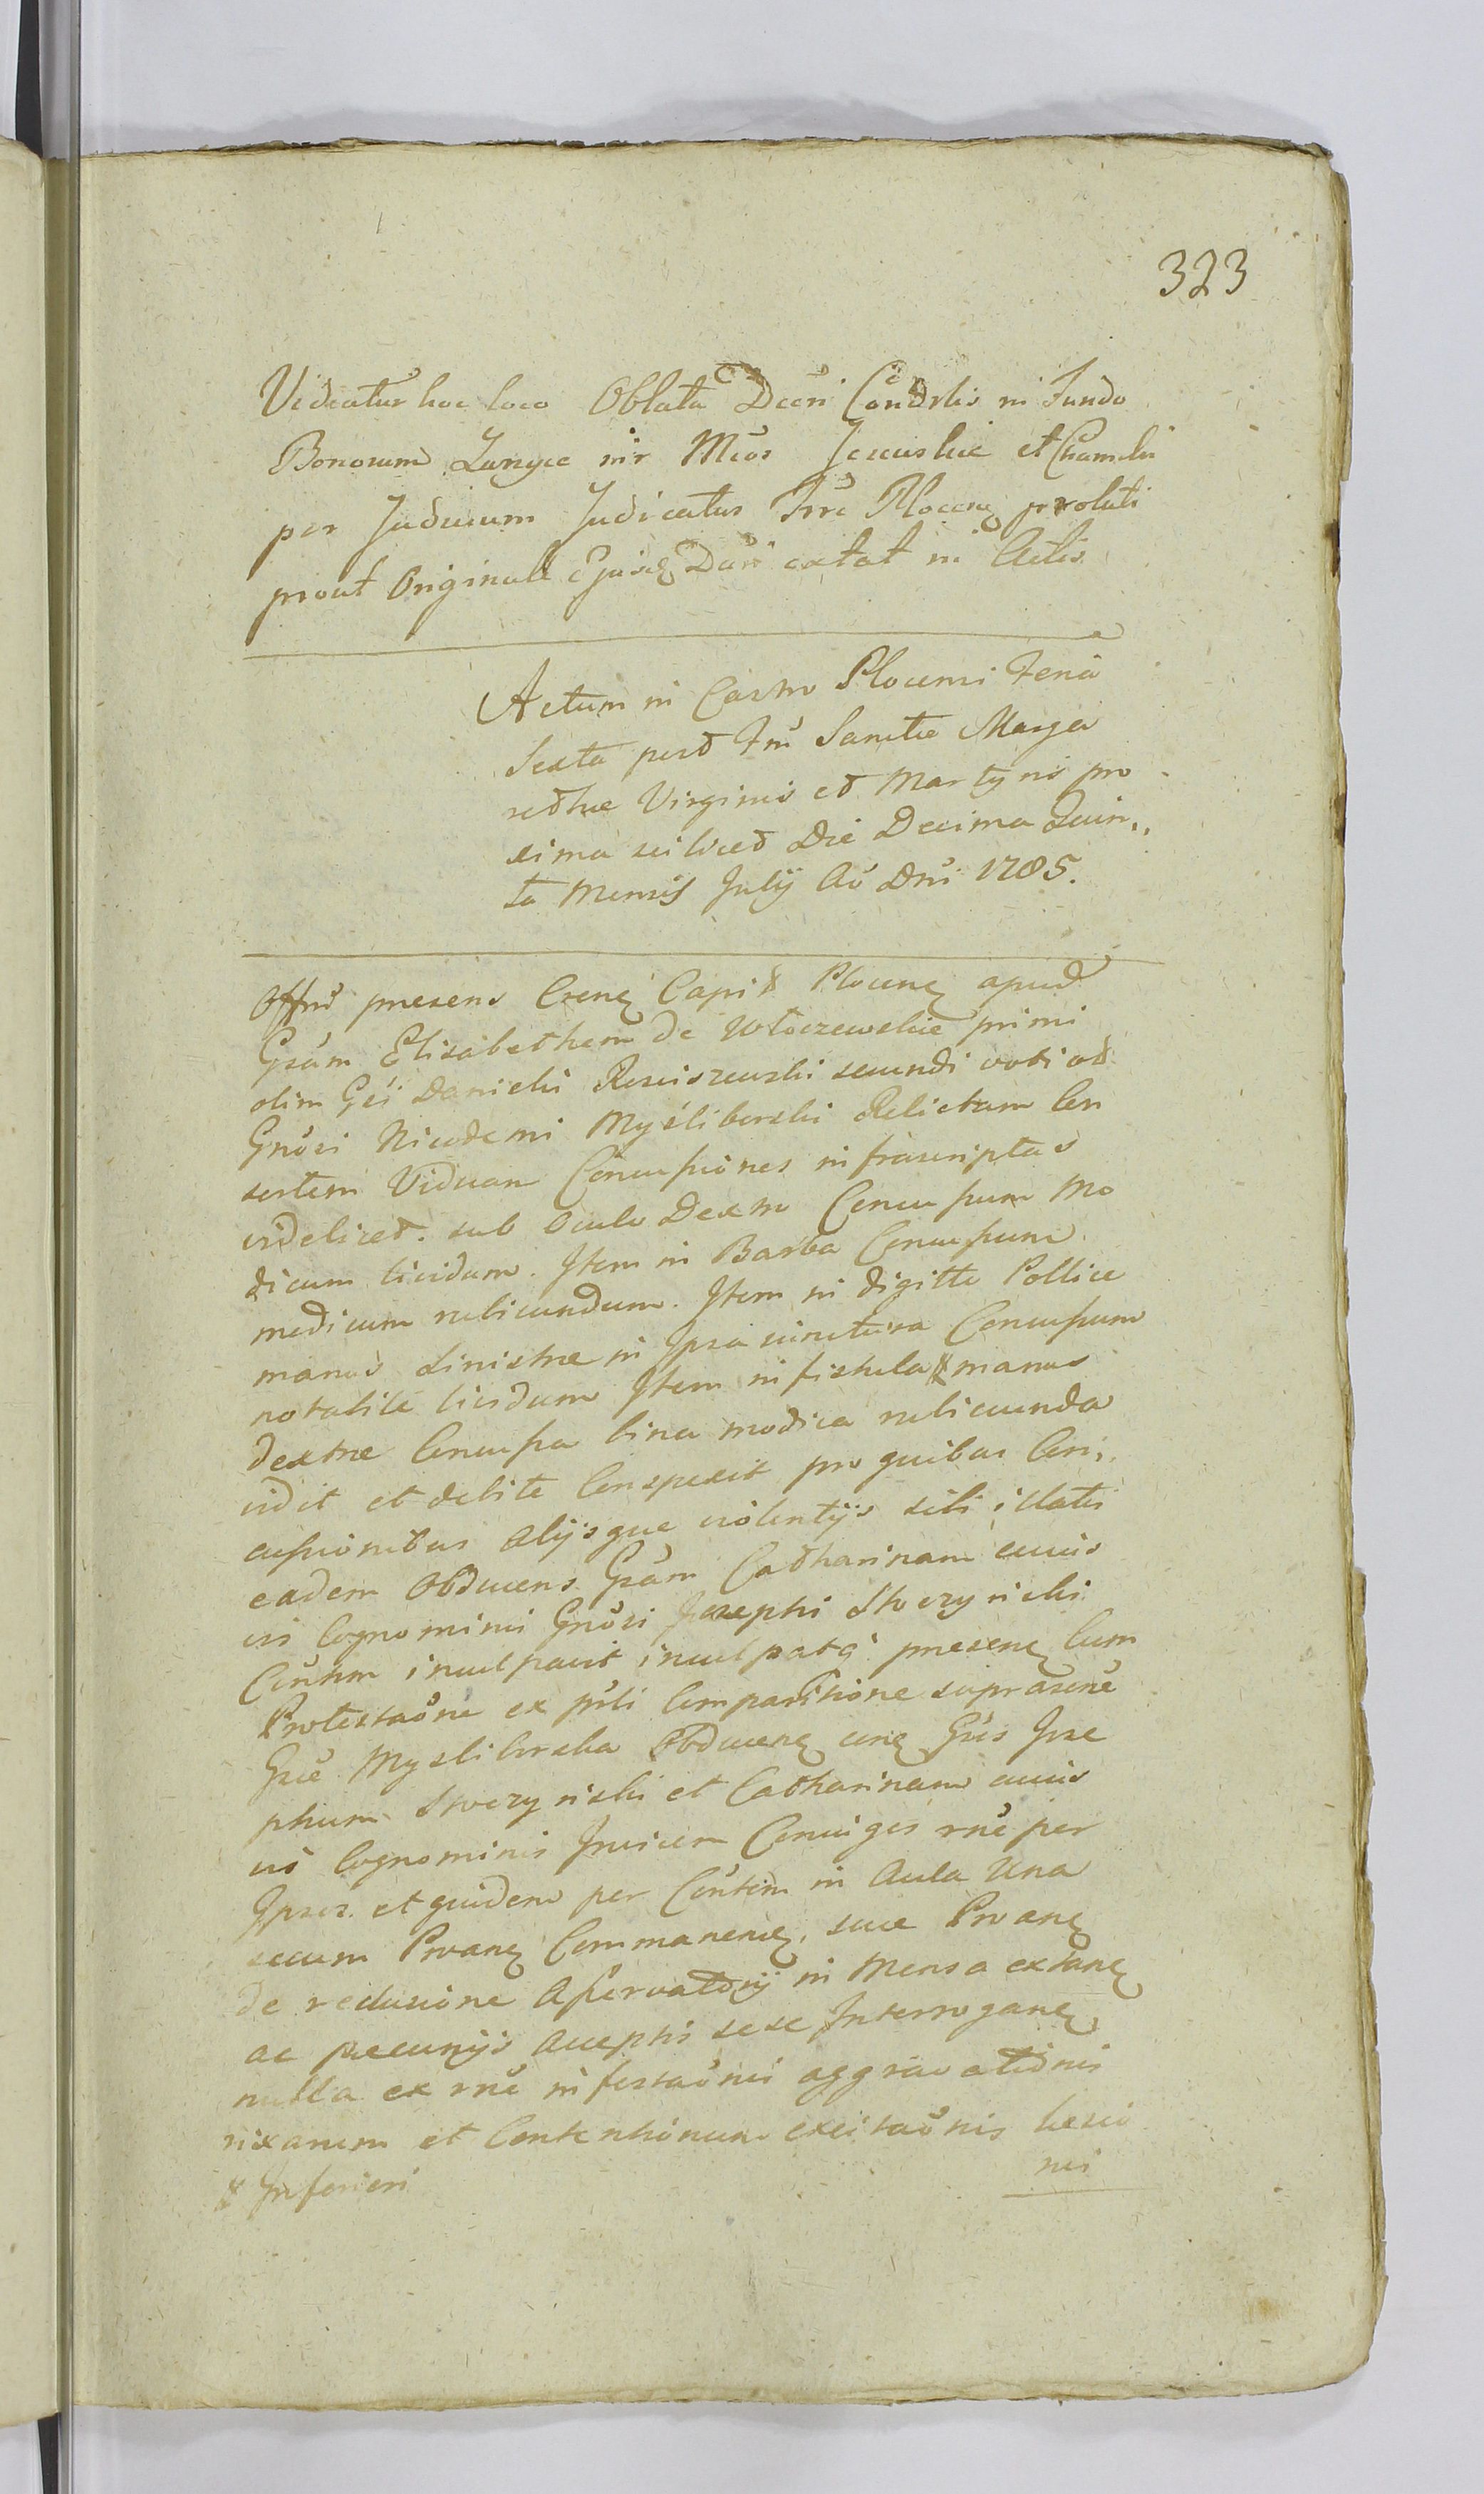 323
Videatur hoc loco Oblata Dcri Condrlis in Fundo
Bonorum inr Mcos et
per Judicium Judicatus Trre Plocen prolati
prout Originale Ejusd extat in Actis
Actum in Castro Plocensi Feria
Sexta post Fm Sanctae Marga
rethae Virginis et Martyris pro
xima scilicet Die Decima Quin,,
ta Mensis Julij Ao Dni 1785.
Offm presens Crens Capit Plocens apud
Gsam Elisabetham de Włoczewskie primi
olim Gsi Danielis Rosciszewski secundi voti ad
Gnosi Nicodemi Myśliborski Relictam Con
sortem Viduam Concussiones infrascriptas
videlicet. sub Oculo Dextro Concussum Mo
dicum lividum. Item in Barba Concussum
modicum rubicundum. Item in digitto Pollice
manus Sinistrae in Ipsa iunctura Concussum
notabile lividum Item in fistula manus
dextrae Concussa bina modica rubicunda
vidit et debite Conspexit pro quibus Con,,
cussionibus Alijsque violentijs sibi illatis
eadem Obducens Gsam Catharinam cuius
vis Cognominis Gnosi Josephi Skrzynicki
Conthm inculpavit inculpatq presens Cum
Protestaone ex pnti Comparitione suprascte
Gsae Mysliborska Obducens cone Gsos Jose
phum Skrzynicki et Catharinam cuius
vis Cognominis Invicem Conuiges rne per
Ipsos et quidem per Contem in Aula Una
secum Proane Commanene, suae Proane
de reclusione Asservatorij in Mensa extane
ac pecunijs Acceptis sese Interrogane
nulla ex rne infestaonis aggravationis
rixarum et Contentionum excitaonis laesio
nis
Inferiori